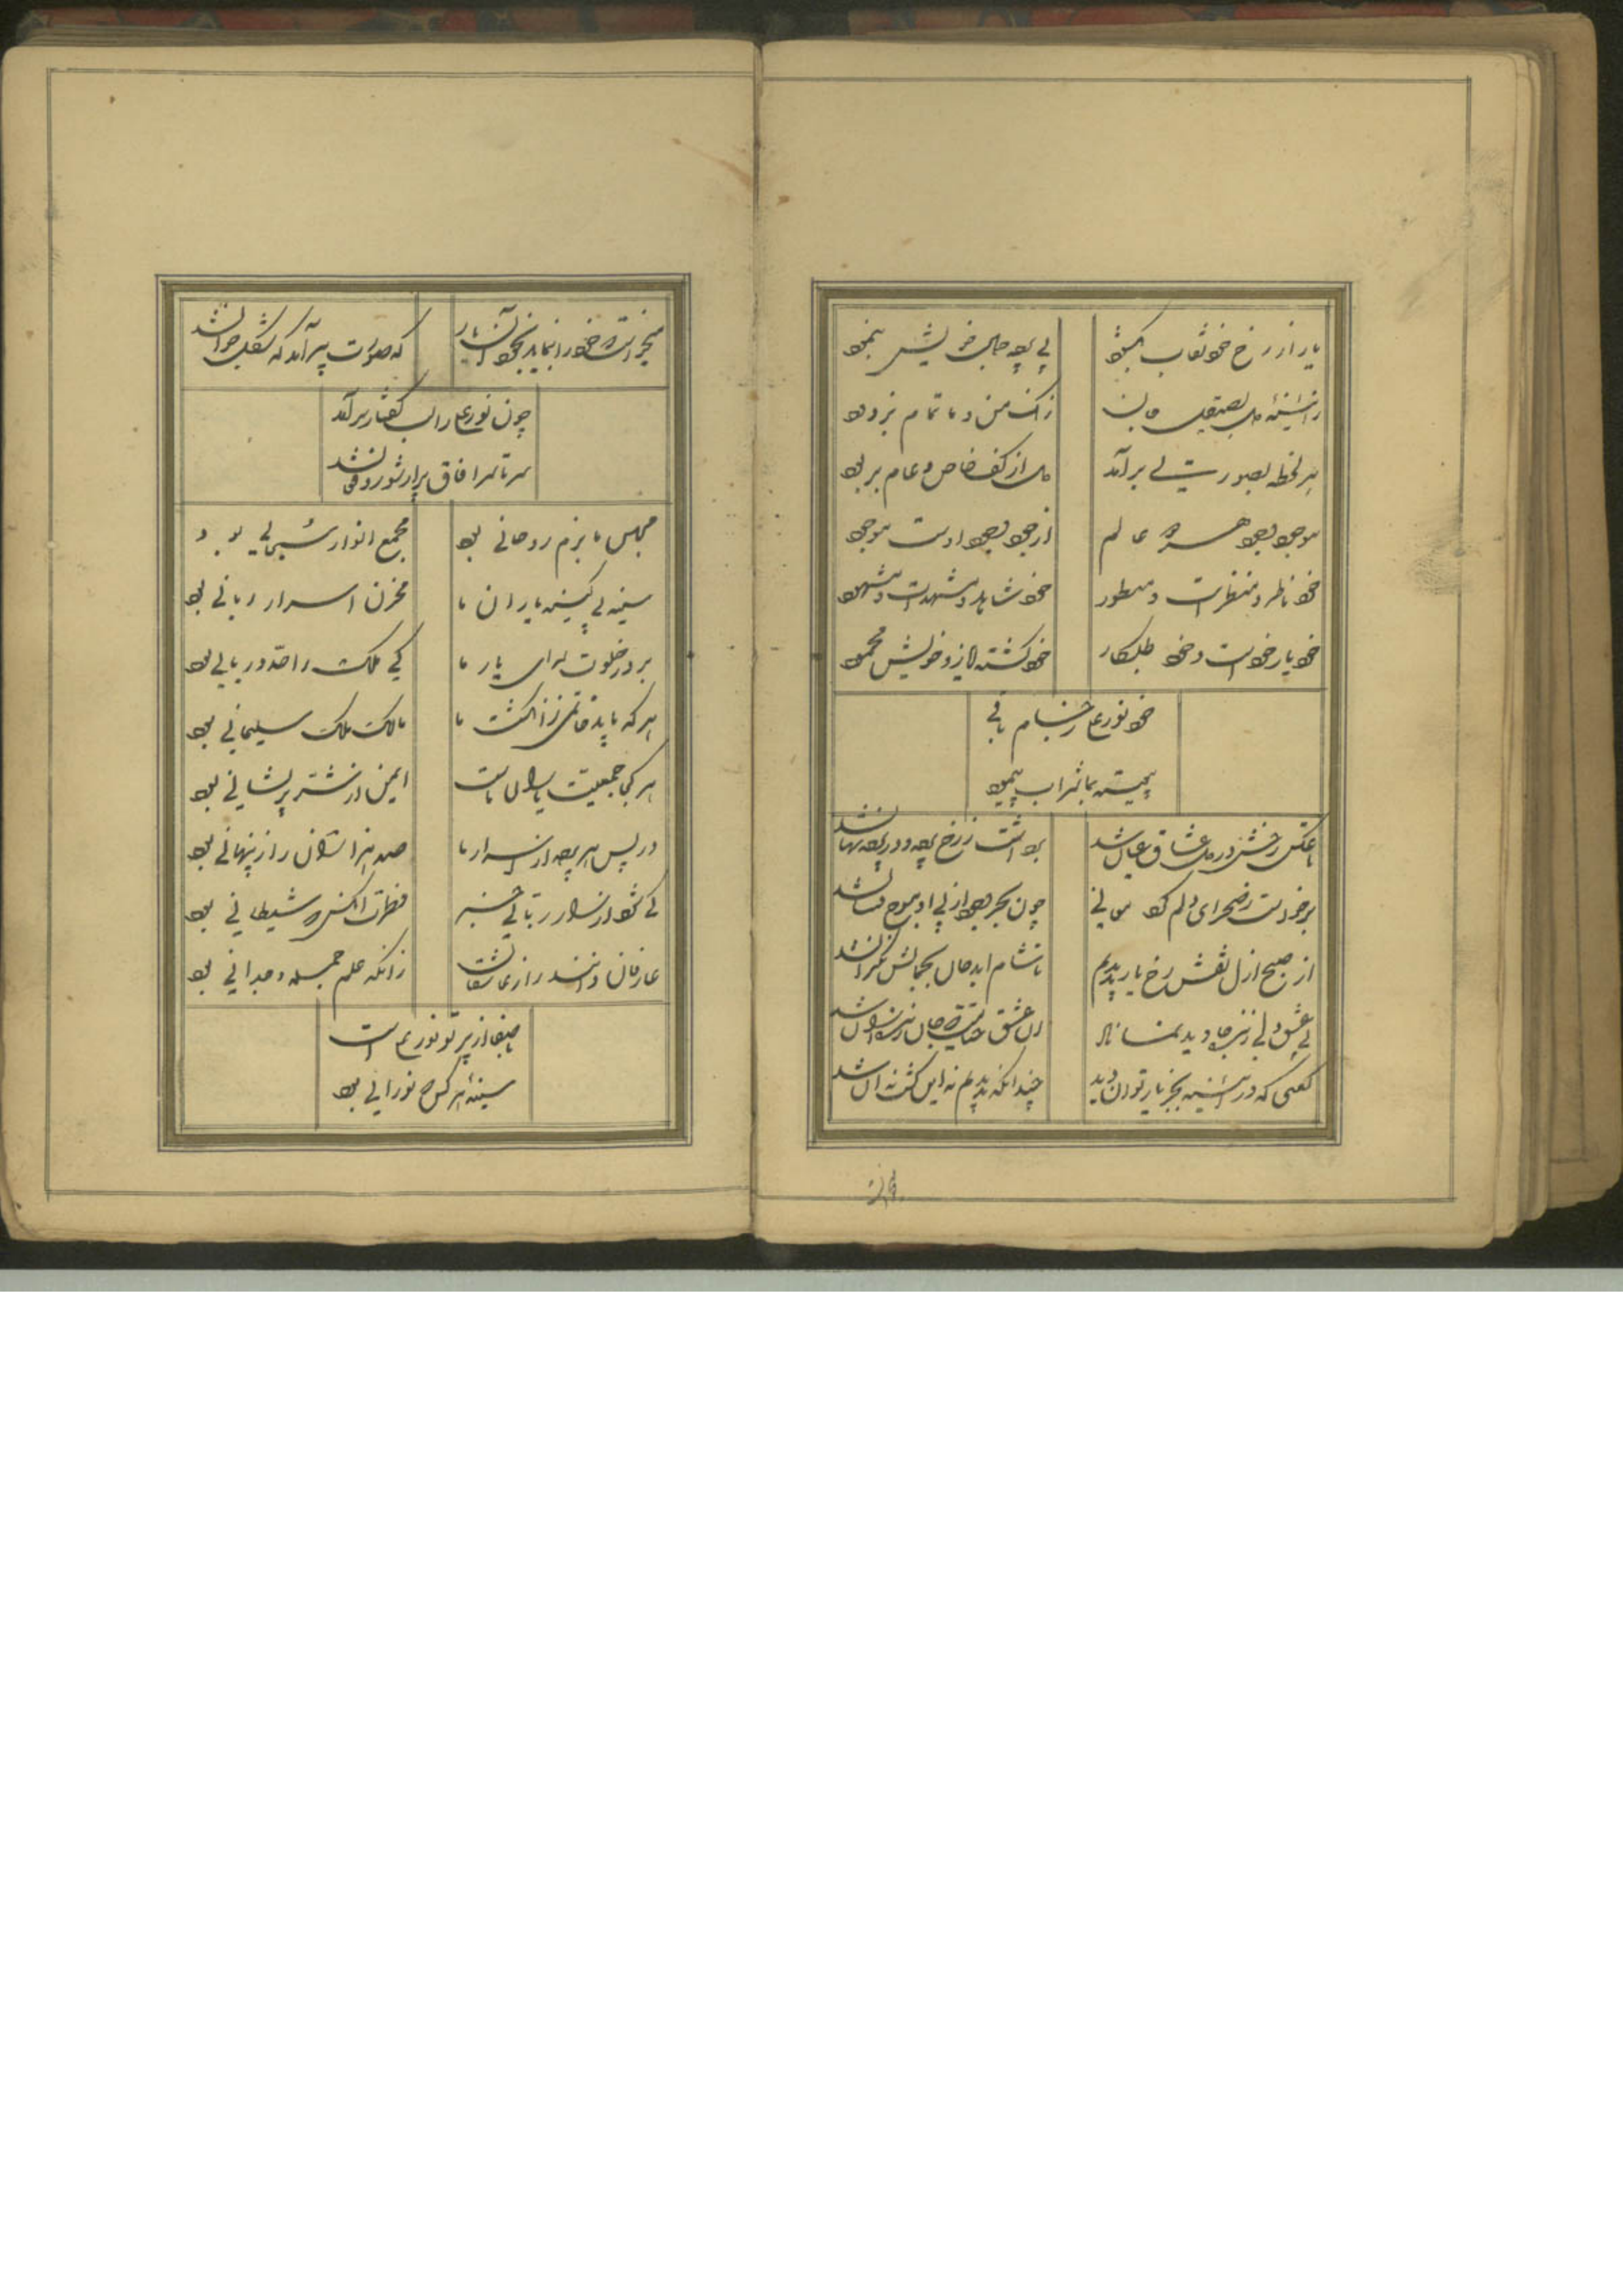 یار از رخ خود نقاب بگشود
بی پرده جمال خویش بنمود
ز آئینه دل بصیقل جان
زنگ من و ما تمام بزدود
هر لحظه بصورتی برآمد
دل از کف خاص و عام بربود
موجود بجود همه عالم
از جود وجود اوست موجود
خود ناظر و منظر است و منظور
خود شاهد و مشهد است و مشهود
خود یار خود است و خود طلبکار
خود گشته ایاز و خویش محمود
خود نورعلی ز جام باقی
پیوسته بما شراب پیمود
تا عکس رخش در دل عشاق عیان شد
برداشت ز رخ پرده و در پرده نهان شد
برخواست ز صحرای دلم گرد
چون بحر وجود از پی او موج فشان شد
از صبح ازل نقش رخ یار بدیدیم
تا شام ابد جان بجمالش نگران شد
بی عشق ولی زنده جاوید نماند
از عشق حقیقت جان زنده از آن شد
گفتی که در آئینه بجز یار توان دید
چندانکه بدیدیم نه این گشت نه آن شد
میخواست که خود را بنماید بخود آن یار
گه صورت پیر آمد و گه شکل جوان شد
چون نورعلی را لب گفتار برآمد
سرتاسر آفاق پر از شور و فغان شد
مجلس ما بزم روحانی بود
مجمع انوار سبحانی بود
سینه بی کینه یاران ما
مخزن اسرار ربانی بود
بر در خلوت سرای یار ما
کی ملک را حد دربانی بود
هر که یابد خاتمی ز انگشت ما
مالک ملک سلیمانی بود
هر کی جمعیت یاران ماست
ایمن از نشتر پریشانی بود
در پس هر پرده از اسرار ما
صد هزاران راز پنهانی بود
کی شود از اسرار ربانی خبیر
فطرت آنکس که شیطانی بود
عارفان دانند راز عاشقان
زانکه علم جمله وجدانی بود
با صفا از پرتو نور علی است
سینه هر کس که نورانی بود